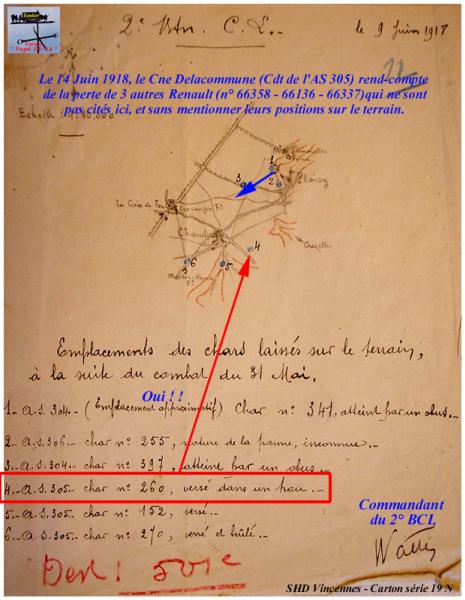 Tanker
Forum
"Pages 14-18"
2e Btn. C.L.
le 9 Juin 1918
Le 14 Juin 1918, le Cne Delacommune (Cdt de l'AS 305) rend-compte
de la perte de 3 autres Renault (n° 66358 - 66136 - 66337)qui ne sont
pas cités ici, et sans mentionner leurs positions sur le terrain.
Echelle
1
Ploisy
2
3
La Croix de Fer
Chaudun
4
Chazelle
6
5
Emplacements des chars laissés sur le terrain,
à la suite du combat du 31 Mai.
Oui ! !
1_ A.S. 304_ (Emplacement approximatif) Char n° 341, atteint par un obus._
2_ A.S. 306_ char n° 255, nature de la panne, inconnue._
3_ A.S. 304_ char n° 397, atteint par un obus._
4_ A.S. 305_ char n° 260, versé dans un trou._
5_ A.S. 305_ char n° 152, versé._
6_ A.S. 305_ char n° 270, versé et brûlé._
Commandant
du 2° BCL
SHD Vincennes - Carton série 19 N